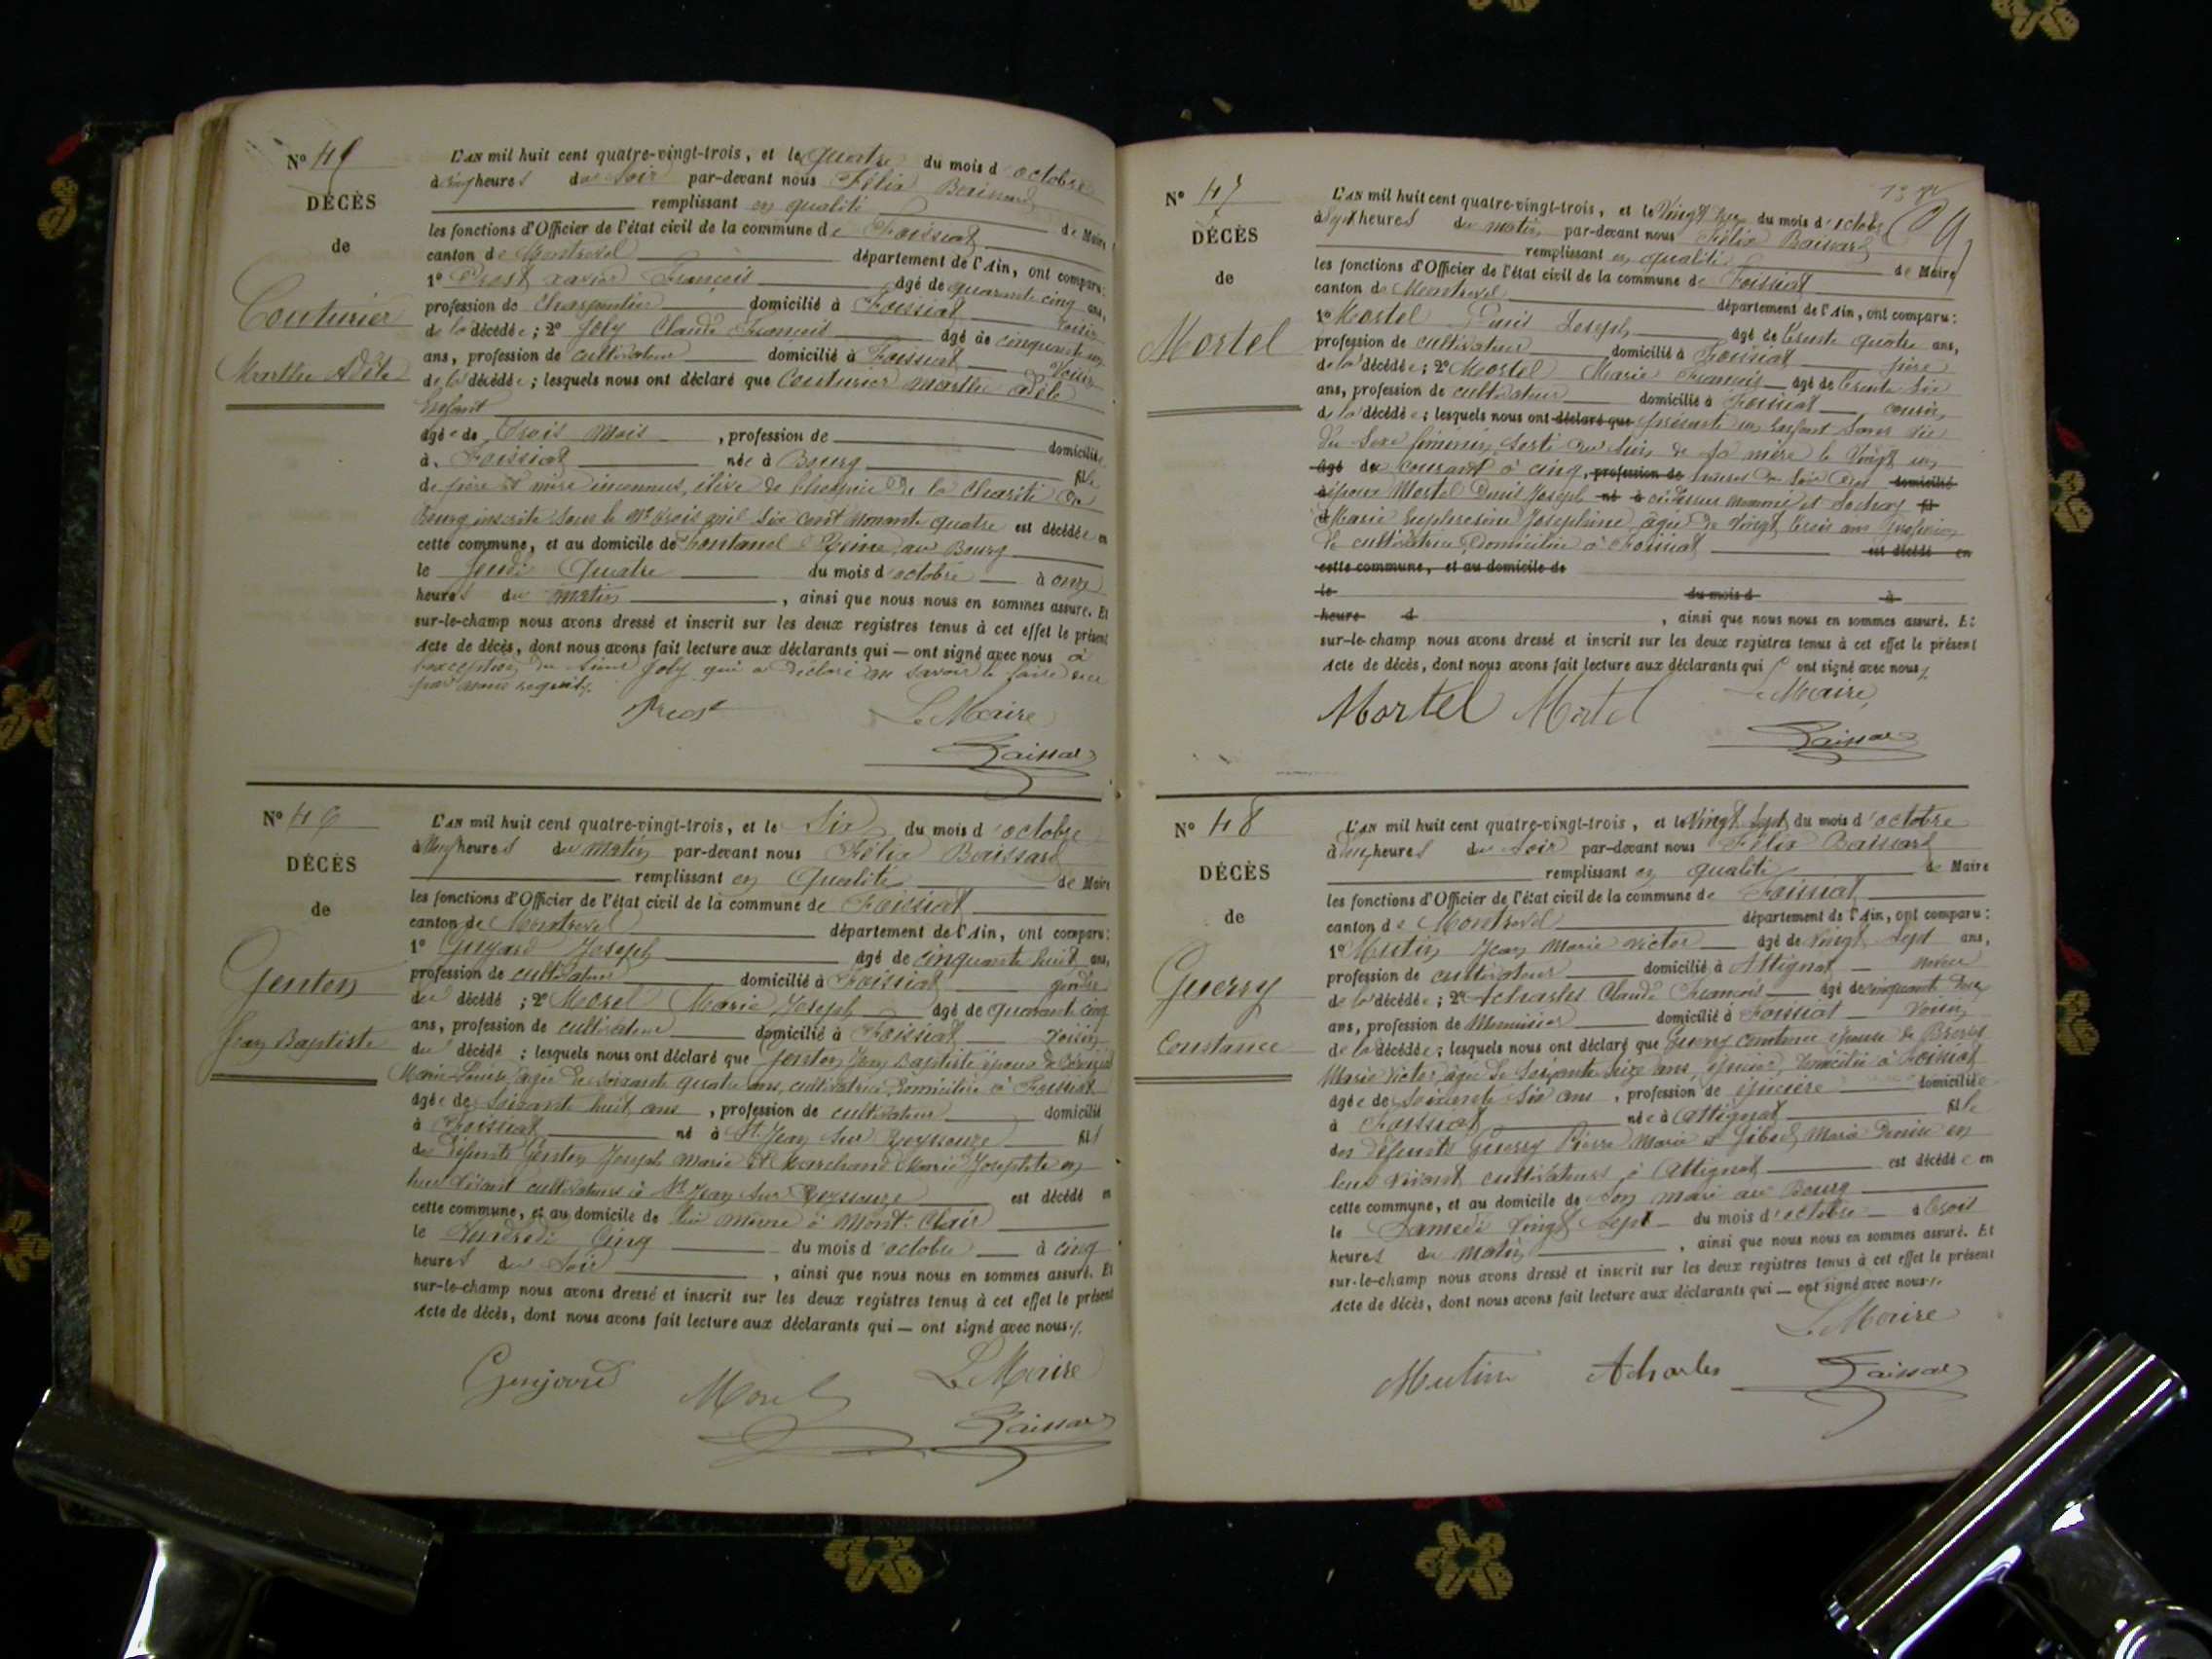 N° 45
DÉCÈS
de
Couturier
Marthe Adèle
L'AN mil huit cent quatre-vingt-trois, et le quatre du mois d'octobre
à cinq heures du soir par-devant nous Félix Baissard
remplissant en qualité de Maire
les fonctions d'Officier de l'état civil de la commune de Foissiat
canton de Montrevel département de l'Ain, ont comparu:
1° Prost xavier François âgé de quarante cinq ans,
profession de charpentier domicilié à Foissiat voisin
de la décédée; 2° Joly Claude François âgé de cinquante un
ans, profession de cultivateur domicilié à Foissiat voisin
de la décédée; lesquels nous ont déclaré que Couturier Marthe adèle
Enfant
âgée de Trois mois, profession de domiciliée
à Foissiat née à Bourg fille
de père et mère inconnus, élève de l'hospice de la Charité de
Bourg inscrite sous le N° trois mil six cent nonante quatre est décédée en
cette commune, et au domicile de au Bourg
le Jeudi Quatre du mois d'octobre à onze
heures du matin, ainsi que nous nous en sommes assuré. Et
sur-le-champ nous avons dressé et inscrit sur les deux registres tenus à cet effet le présent
Acte de décès, dont nous avons fait lecture aux déclarants qui — ont signé avec nous à
l'exception du sieur Joly qui a déclaré ne savoir le faire de ce
par nous requis.
Prost Le Maire
Baissard
N° 46
DÉCÈS
de
Genton
Jean Baptiste
L'AN mil huit cent quatre-vingt-trois, et le Six du mois d'octobre
à heures du matin par-devant nous Félix Baissard
remplissant en Qualité de Maire
les fonctions d'Officier de l'état civil de la commune de Foissiat
canton de Montrevel département de l'Ain, ont comparu:
1° Joseph âgé de cinquante huit ans,
profession de cultivateur domicilié à Foissiat gendre
du décédé; 2° Morel Marie Joseph âgé de quarante cinq
ans, profession de cultivateur domicilié à Foissiat voisin
du décédé; lesquels nous ont déclaré que Genton Jean Baptiste époux de
Marie Louise âgée de soixante quatre ans, cultivatrice, domiciliée à Foissiat
âgé de soixante huit ans, profession de cultivateur domicilié
à Foissiat né à St Jean sur Reyssouze fils
de défunts Genton Joseph Marie et Marchand Marie Josephte en
leur vivant cultivateurs à St Jean sur Reyssouze est décédé en
cette commune, et au domicile de lui même à Mont-Clair
le Vendredi Cinq du mois d'octobre à cinq
heures du soir, ainsi que nous nous en sommes assuré. Et
sur-le-champ nous avons dressé et inscrit sur les deux registres tenus à cet effet le présent
Acte de décès, dont nous avons fait lecture aux déclarants qui — ont signé avec nous.
Morel Le Maire
Baissard
N° 47
DÉCÈS
de
Mortel
L'AN mil huit cent quatre-vingt-trois, et le Vingt deux du mois d'octobre
à Sept heures du matin par-devant nous Félix Baissard
remplissant en qualité de Maire
les fonctions d'Officier de l'état civil de la commune de Foissiat
canton de Montrevel département de l'Ain, ont comparu:
1° Mortel Denis Joseph âgé de trente quatre ans,
profession de cultivateur domicilié à Foissiat père
de la décédée; 2° Mortel Marie François âgé de trente six
ans, profession de cultivateur domicilié à Foissiat cousin
de la décédée; lesquels nous ont déclaré que présenté un Enfant Sans vie
du sexe féminin sorti du sein de sa mère le vingt un
âgé du courant à cinq, profession de heures du soir des domicilié
à époux Mortel Denis Joseph né à ci-dessus nommé et fil
d Marie Euphrosine Josephine, âgée de vingt trois ans profession
de cultivatrice domiciliée à Foissiat est décédé en
cette commune, et au domicile de
le du mois d à
heure d, ainsi que nous nous en sommes assuré. Et
sur-le-champ nous avons dressé et inscrit sur les deux registres tenus à cet effet le présent
Acte de décès, dont nous avons fait lecture aux déclarants qui ont signé avec nous.
Mortel Martel Le Maire
Baissard
N° 48
DÉCÈS
de
Guerry
Constance
L'AN mil huit cent quatre-vingt-trois, et le Vingt Sept du mois d'octobre
à cinq heures du soir par-devant nous Félix Baissard
remplissant en qualité de Maire
les fonctions d'Officier de l'état civil de la commune de Foissiat
canton de Montrevel département de l'Ain, ont comparu:
1° Mutin Jean Marie Victor âgé de Vingt Sept ans,
profession de cultivateur domicilié à Attignat neveu
de la décédée; 2° Acharles Claude François âgé de cinquante deux
ans, profession de Menuisier domicilié à Foissiat voisin
de la décédée; lesquels nous ont déclaré que Guerry constance épouse de
Marie Victor, âgé de Soixante Seize ans, épicier, domicilié à Foissiat
âgée de soixante six ans, profession de épicière domiciliée
à Foissiat née à Attignat fille
des défunts Guerry Pierre Marie et Marie Denise en
leur vivant cultivateurs à Attignat est décédée en
cette commune, et au domicile de son mari au Bourg
le Samedi vingt Sept du mois d'octobre à trois
heures du matin, ainsi que nous nous en sommes assuré. Et
sur-le-champ nous avons dressé et inscrit sur les deux registres tenus à cet effet le présent
Acte de décès, dont nous avons fait lecture aux déclarants qui — ont signé avec nous.
Le Maire
Mutin Acharles Baissard